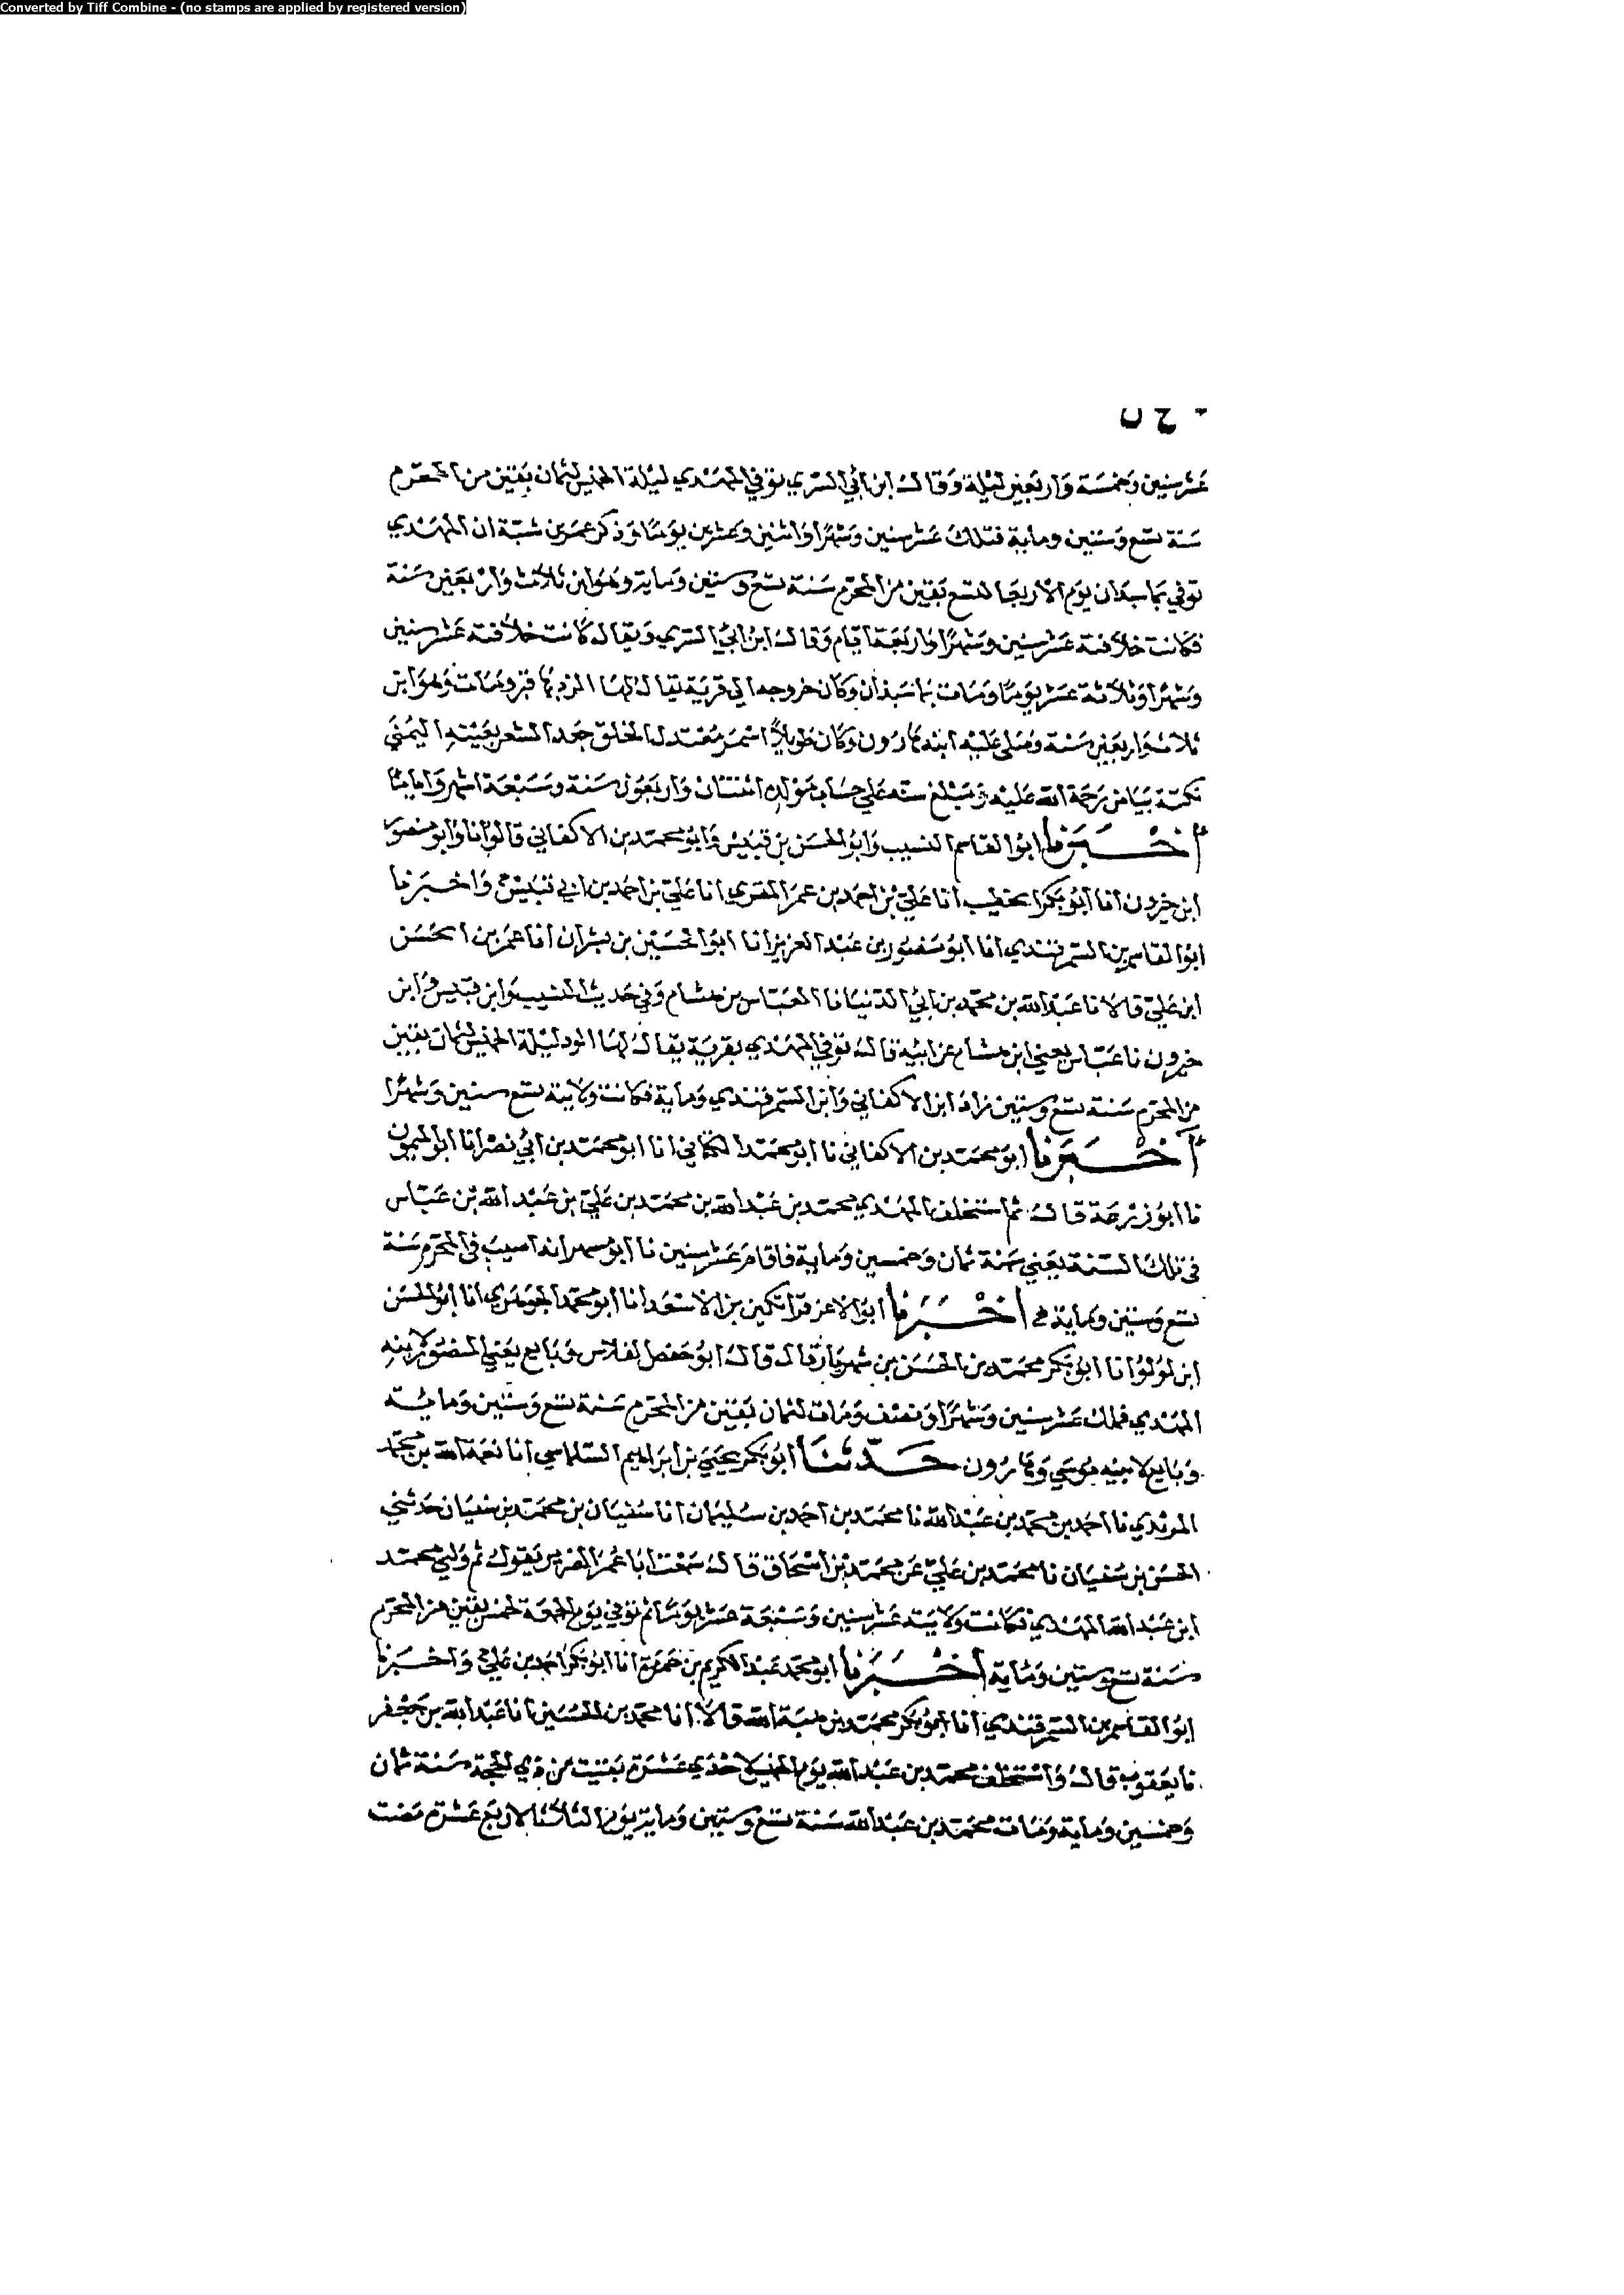 Converted by Tiff Combine - (no stamps are applied by registered version)
عشر سنين وخمسة واربعين ليلة وقال ابن أبي السري توفي المهدي ليلة الخميس لثمان بقين من المحرم
سنة تسع وستين وماية فتلك عشر سنين وشهرا واثنين وعشرين يوما وذكر عمر بن شبة ان المهدي
توفي بماسبذان يوم الاربعا لتسع بقين من المحرم سنة تسع وستين وماية وهو ابن ثلاث واربعين سنة
فكانت خلافته عشر سنين وشهرا واربعة ايام وقال ابن أبي السري ويقال كانت خلافته عشر سنين
وشهرا وثلاثة عشر يوما ومات بماسبذان وكان خروجه الى قرية يقال لها الرذ بها قبره ومات وهو ابن
ثلاث واربعين سنة وصلى عليه ابنه هارون وكان طويلا اسمر معتدل الخلق جعد الشعر بعينه اليمنى
نكتة بياض رحمة الله عليه ومبلغ سنه على حساب مولده اثنتان واربعون سنة وسبعة اشهر واياما
أخبرنا ابو القاسم النسيب وابو الحسن بن قبيس وابو محمد بن الاكفاني قالوا نا وابو منصور
ابن خيرون أنا أبو بكر الخطيب أنا علي بن احمد بن عمر المقري أنا علي بن احمد بن ابي قيس ح واخبرنا
ابو القاسم بن السمرقندي انا ابو منصور بن عبد العزيز انا ابو الحسين بن بشران أنا عمر بن الحسن
ابن علي قالا نا عبد الله بن محمد بن أبي الدنيا نا العباس بن هشام وفي حديث النسيب وابن قبيس وابن
خيرون نا عباس يعني ابن هشام عن ابيه قال توفي المهدي بقرية يقال لها الرذ ليلة الخميس لثمان بقين
من المحرم سنة تسع وستين زاد ابن الاكفاني وابن السمرقندي وماية فكانت ولايته تسع سنين وشهرا
أخبرنا ابو محمد بن الاكفاني نا ابو محمد الكتاني انا ابو محمد بن أبي نصر انا ابو الميمون
نا ابو زرعة قال ثم استخلف المهدي محمد بن عبد الله بن محمد بن علي بن عبد الله بن عباس
في تلك السنة يعني سنة ثمان وخمسين وماية فاقام عشر سنين نا ابو مسهر انه اصيب في المحرم سنة
تسع وستين وماية أخبرنا ابو الاعز قراتكين بن الاسعد انا ابو محمد الجوهري أنا ابو الحسن
ابن لولو انا ابو بكر محمد بن الحسين بن شهريار قال قال ابو حفص الفلاس وبايع يعني المنصور لابنه
المهدي فملك عشر سنين وشهرا ونصف ومات لثمان بقين من المحرم سنة تسع وستين وماية
وبايع لابنيه موسى وهارون حدثنا ابو بكر يحيى بن ابراهيم السلماسي أنا نعمة الله بن محمد
المرندي نا احمد بن محمد بن عبد الله نا محمد بن احمد بن سليمان انا سفيان بن محمد بن سفيان حدثني
الحسن بن سفيان نا محمد بن علي عن محمد بن اسحاق قال سمعت ابا عمر الضرير يقول ثم ولي محمد
ابن عبد الله المهدي فكانت ولايته عشر سنين وسبعة عشر يوما ثم توفي يوم الجمعة لخمس بقين من المحرم
سنة تسع وستين وماية أخبرنا ابو محمد عبد الكريم بن حمزة أنا ابو بكر احمد بن علي ح واخبرنا
ابو القاسم بن السمرقندي أنا ابو بكر محمد بن هبة الله قالا أنا محمد بن الحسين انا عبد الله بن جعفر
نا يعقوب قال واستخلف محمد بن عبد الله يوم الخميس لاحدى عشرة بقيت من ذي الحجة سنة ثمان
وخمسين وماية ومات محمد بن عبد الله سنة تسع وستين وماية يوم الثلاثا لاربع عشرة مضت